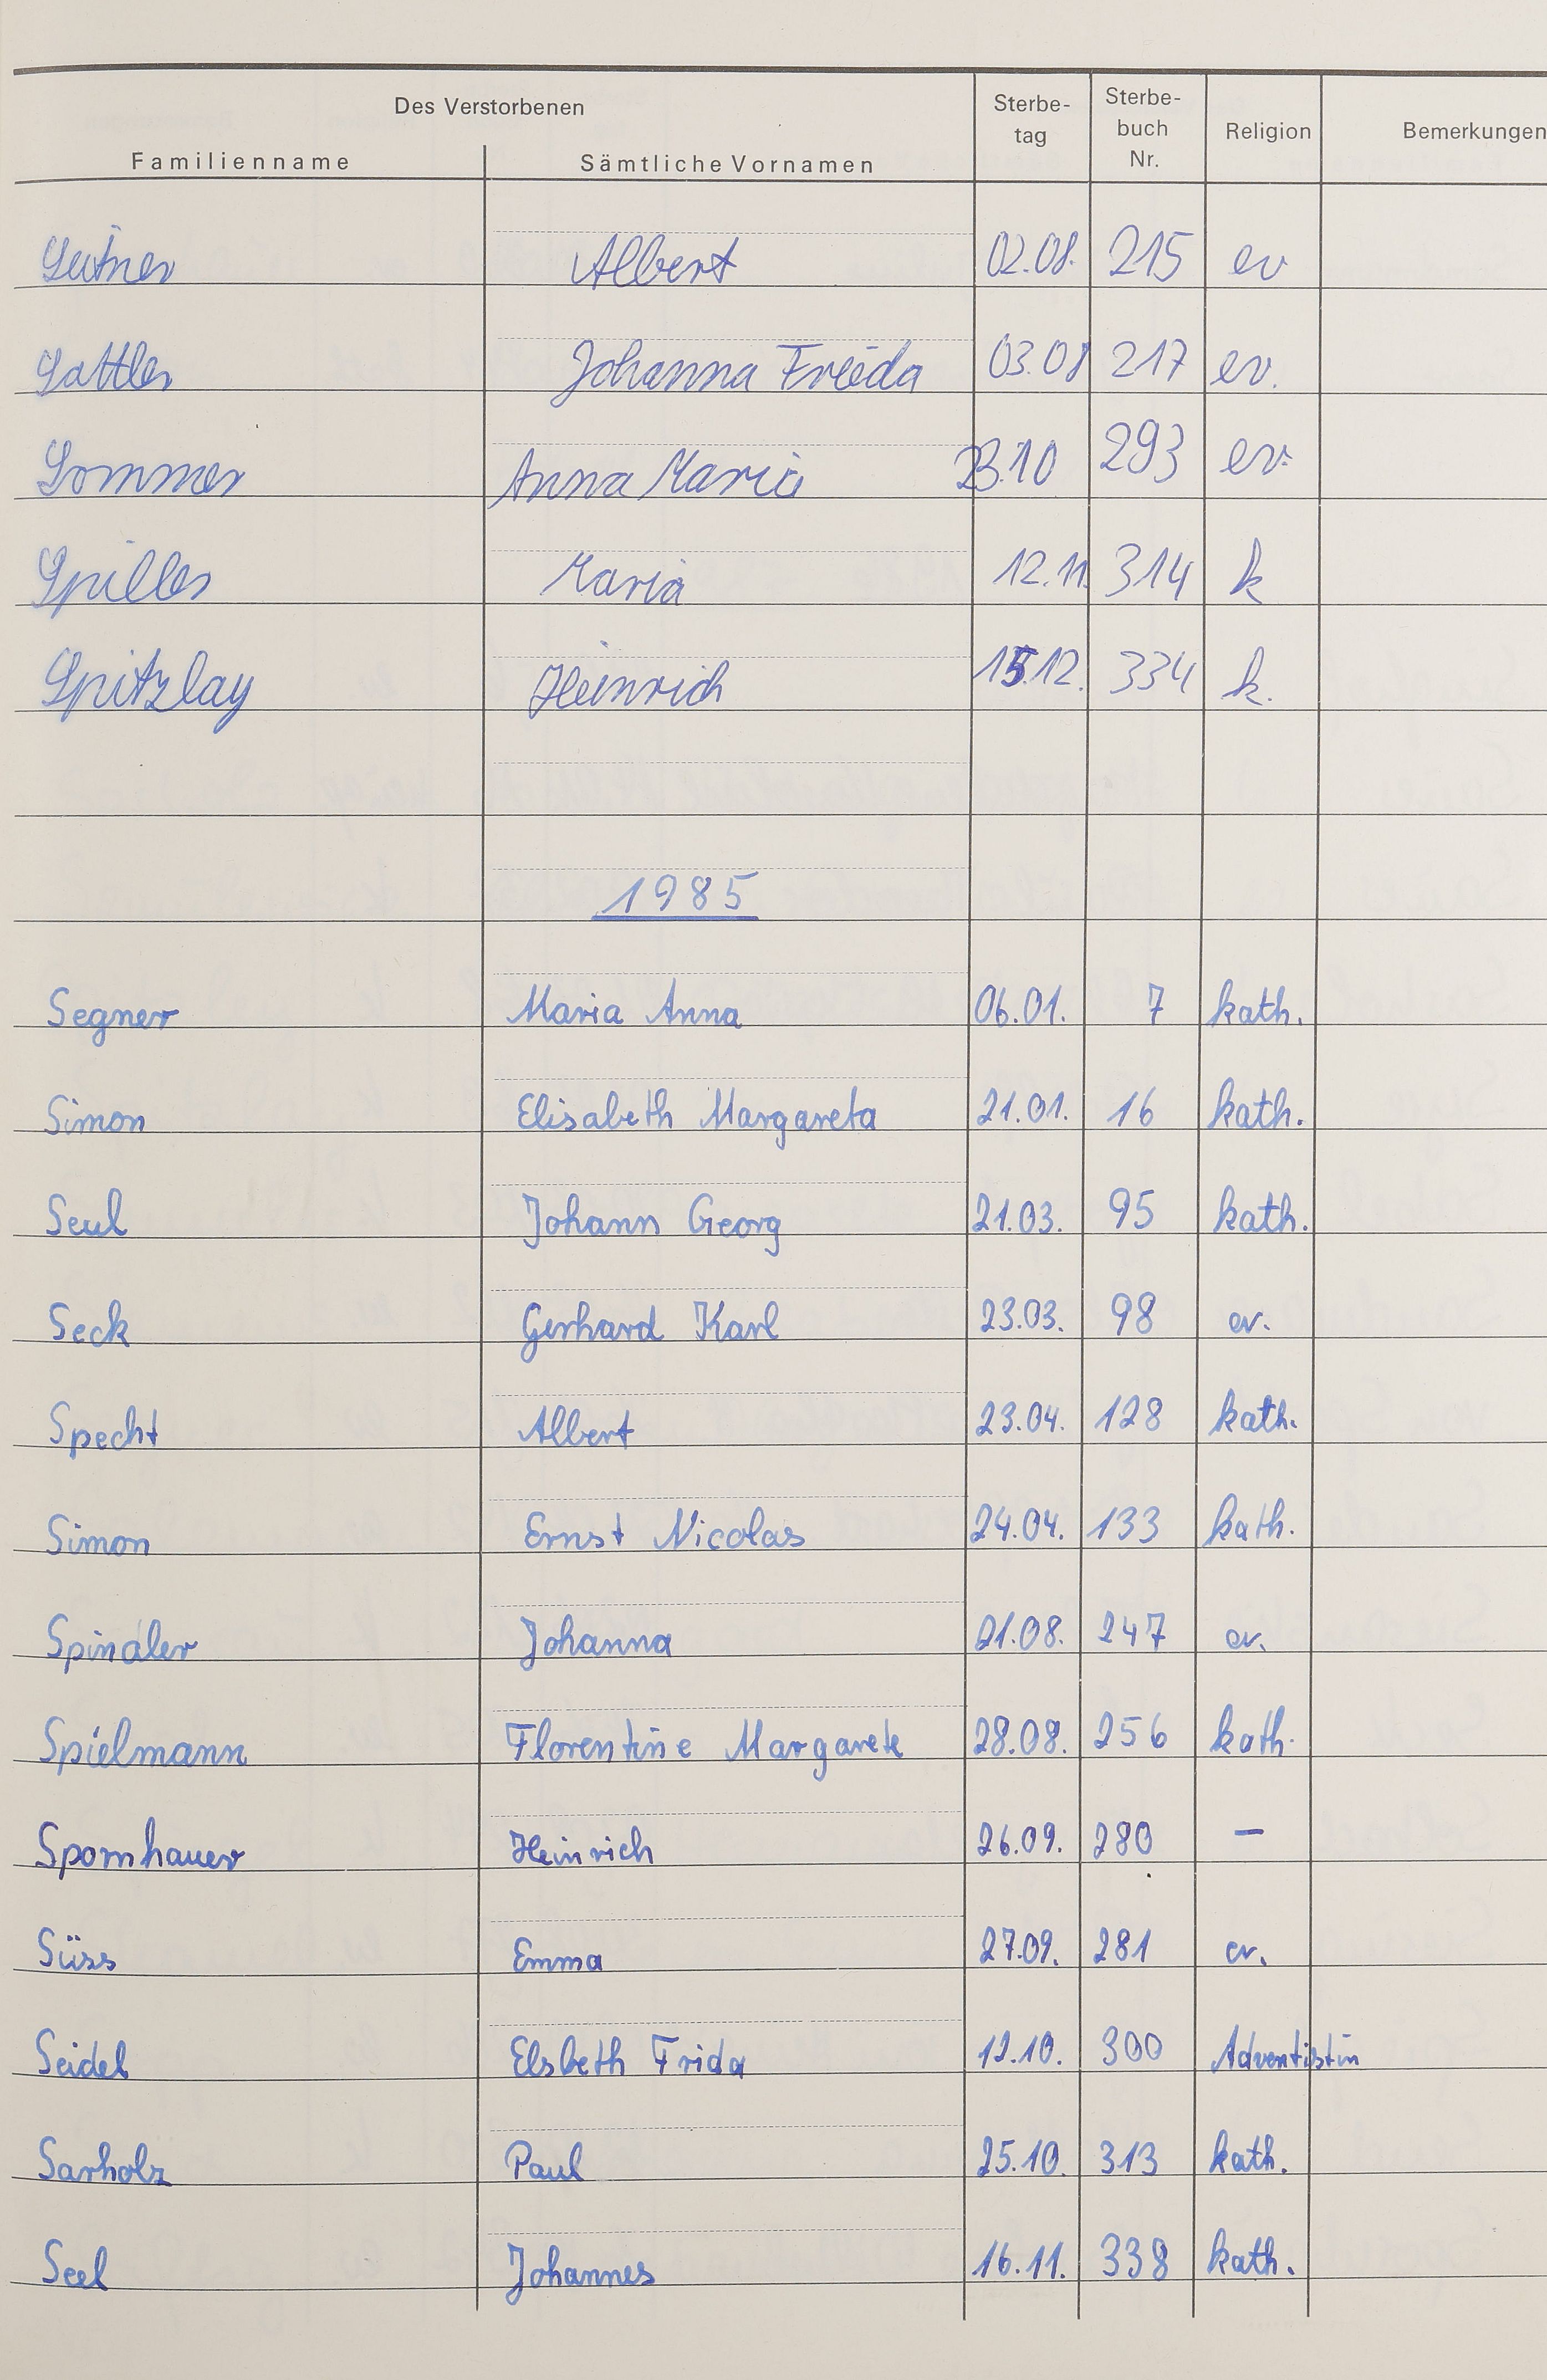 Des Verstorbenen
Familienname Sämtliche Vornamen Sterbe-tag Sterbe-buch Nr. Religion Bemerkungen
Albert 02.08. 215 ev
Sattler Johanna Frieda 03.08 217 ev.
Sommer Anna Maria 23.10 293 ev.
Spilles Maria 12.11. 314 k
Spitzlay Heinrich 15.12. 334 k.
1985
Segner Maria Anna 06.01. 7 kath.
Simon Elisabeth Margareta 21.01. 16 kath.
Seul Johann Georg 21.03. 95 kath.
Seck Gerhard Karl 23.03. 98 ev.
Specht Albert 23.04. 128 kath.
Simon Ernst Nicolas 24.04. 133 kath.
Spindler Johanna 21.08. 247 ev.
Spielmann Florentine Margarete 28.08. 256 kath.
Spornhauer Heinrich 26.09. 280 –
Süss Emma 27.09. 281 ev.
Seidel Elsbeth Frida 12.10. 300 Adventistin
Sarholz Paul 25.10. 313 kath.
Seel Johannes 16.11. 338 kath.